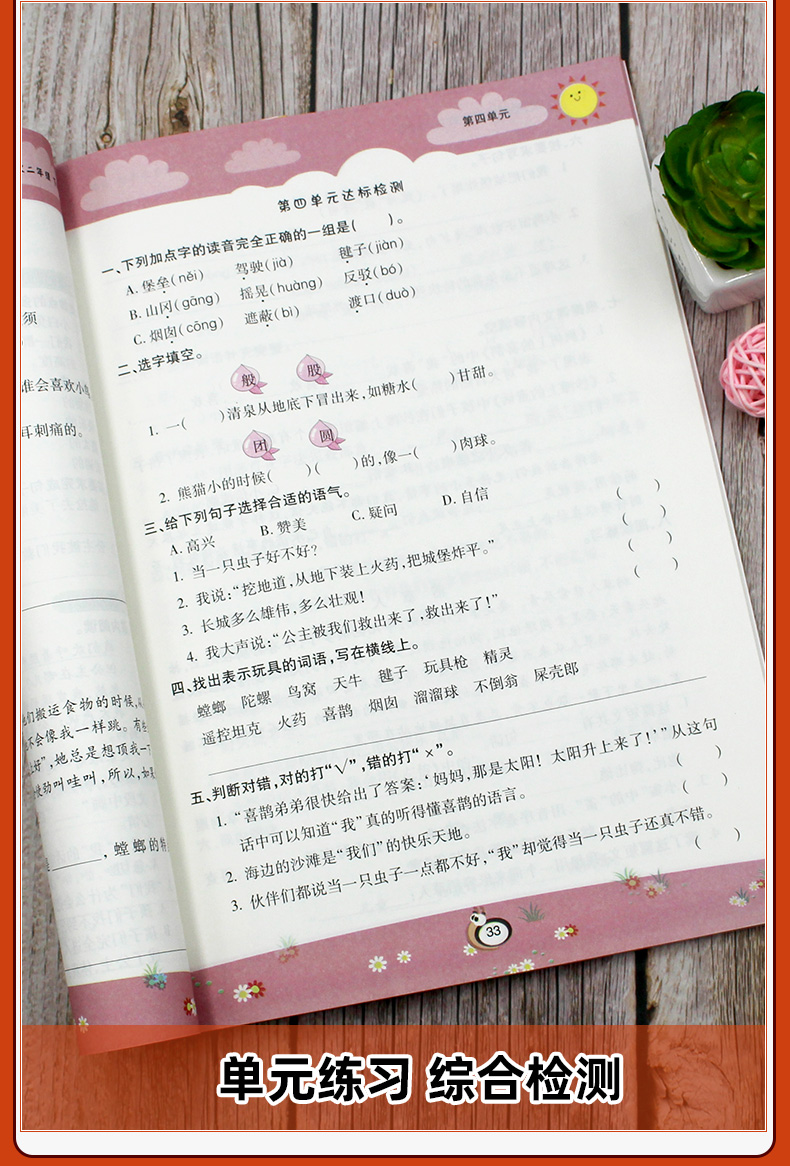 第四单元
第四单元达标检测
一、下列加点字的读音完全正确的一组是(  )。
A. 堡垒(něi) 驾驶(jià) 毽子(jiàn)
B. 山冈(gāng) 摇晃(huàng) 反驳(bó)
C. 烟囱(cōng) 遮蔽(bì) 渡口(duò)
二、选字填空。
般 股
1. 一(  )清泉从地底下冒出来,如糖水(  )甘甜。
团 圆
2. 熊猫小的时候(  )(  )的,像一(  )肉球。
三、给下列句子选择合适的语气。
A. 高兴 B. 赞美 C. 疑问 D. 自信
1. 当一只虫子好不好? (  )
2. 我说:“挖地道,从地下装上火药,把城堡炸平。” (  )
3. 长城多么雄伟,多么壮观! (  )
4. 我大声说:“公主被我们救出来了,救出来了!” (  )
四、找出表示玩具的词语,写在横线上。
螳螂 陀螺 鸟窝 天牛 毽子 玩具枪 精灵
遥控坦克 火药 喜鹊 烟囱 溜溜球 不倒翁 屎壳郎
五、判断对错,对的打“√”,错的打“×”。
1. “喜鹊弟弟很快给出了答案:‘妈妈,那是太阳!太阳升上来了!’”从这句
话中可以知道“我”真的听得懂喜鹊的语言。 (  )
2. 海边的沙滩是“我们”的快乐天地。 (  )
3. 伙伴们都说当一只虫子一点都不好,“我”却觉得当一只虫子还真不错。
(  )
33
二年级
须
会喜欢小鸟
耳刺痛的。
们搬运食物的时候,
不会像我一样跳。有些
上好”,她总是想顶我一下
使劲叫哇叫,所以,如果
,螳螂的特
单元练习 综合检测